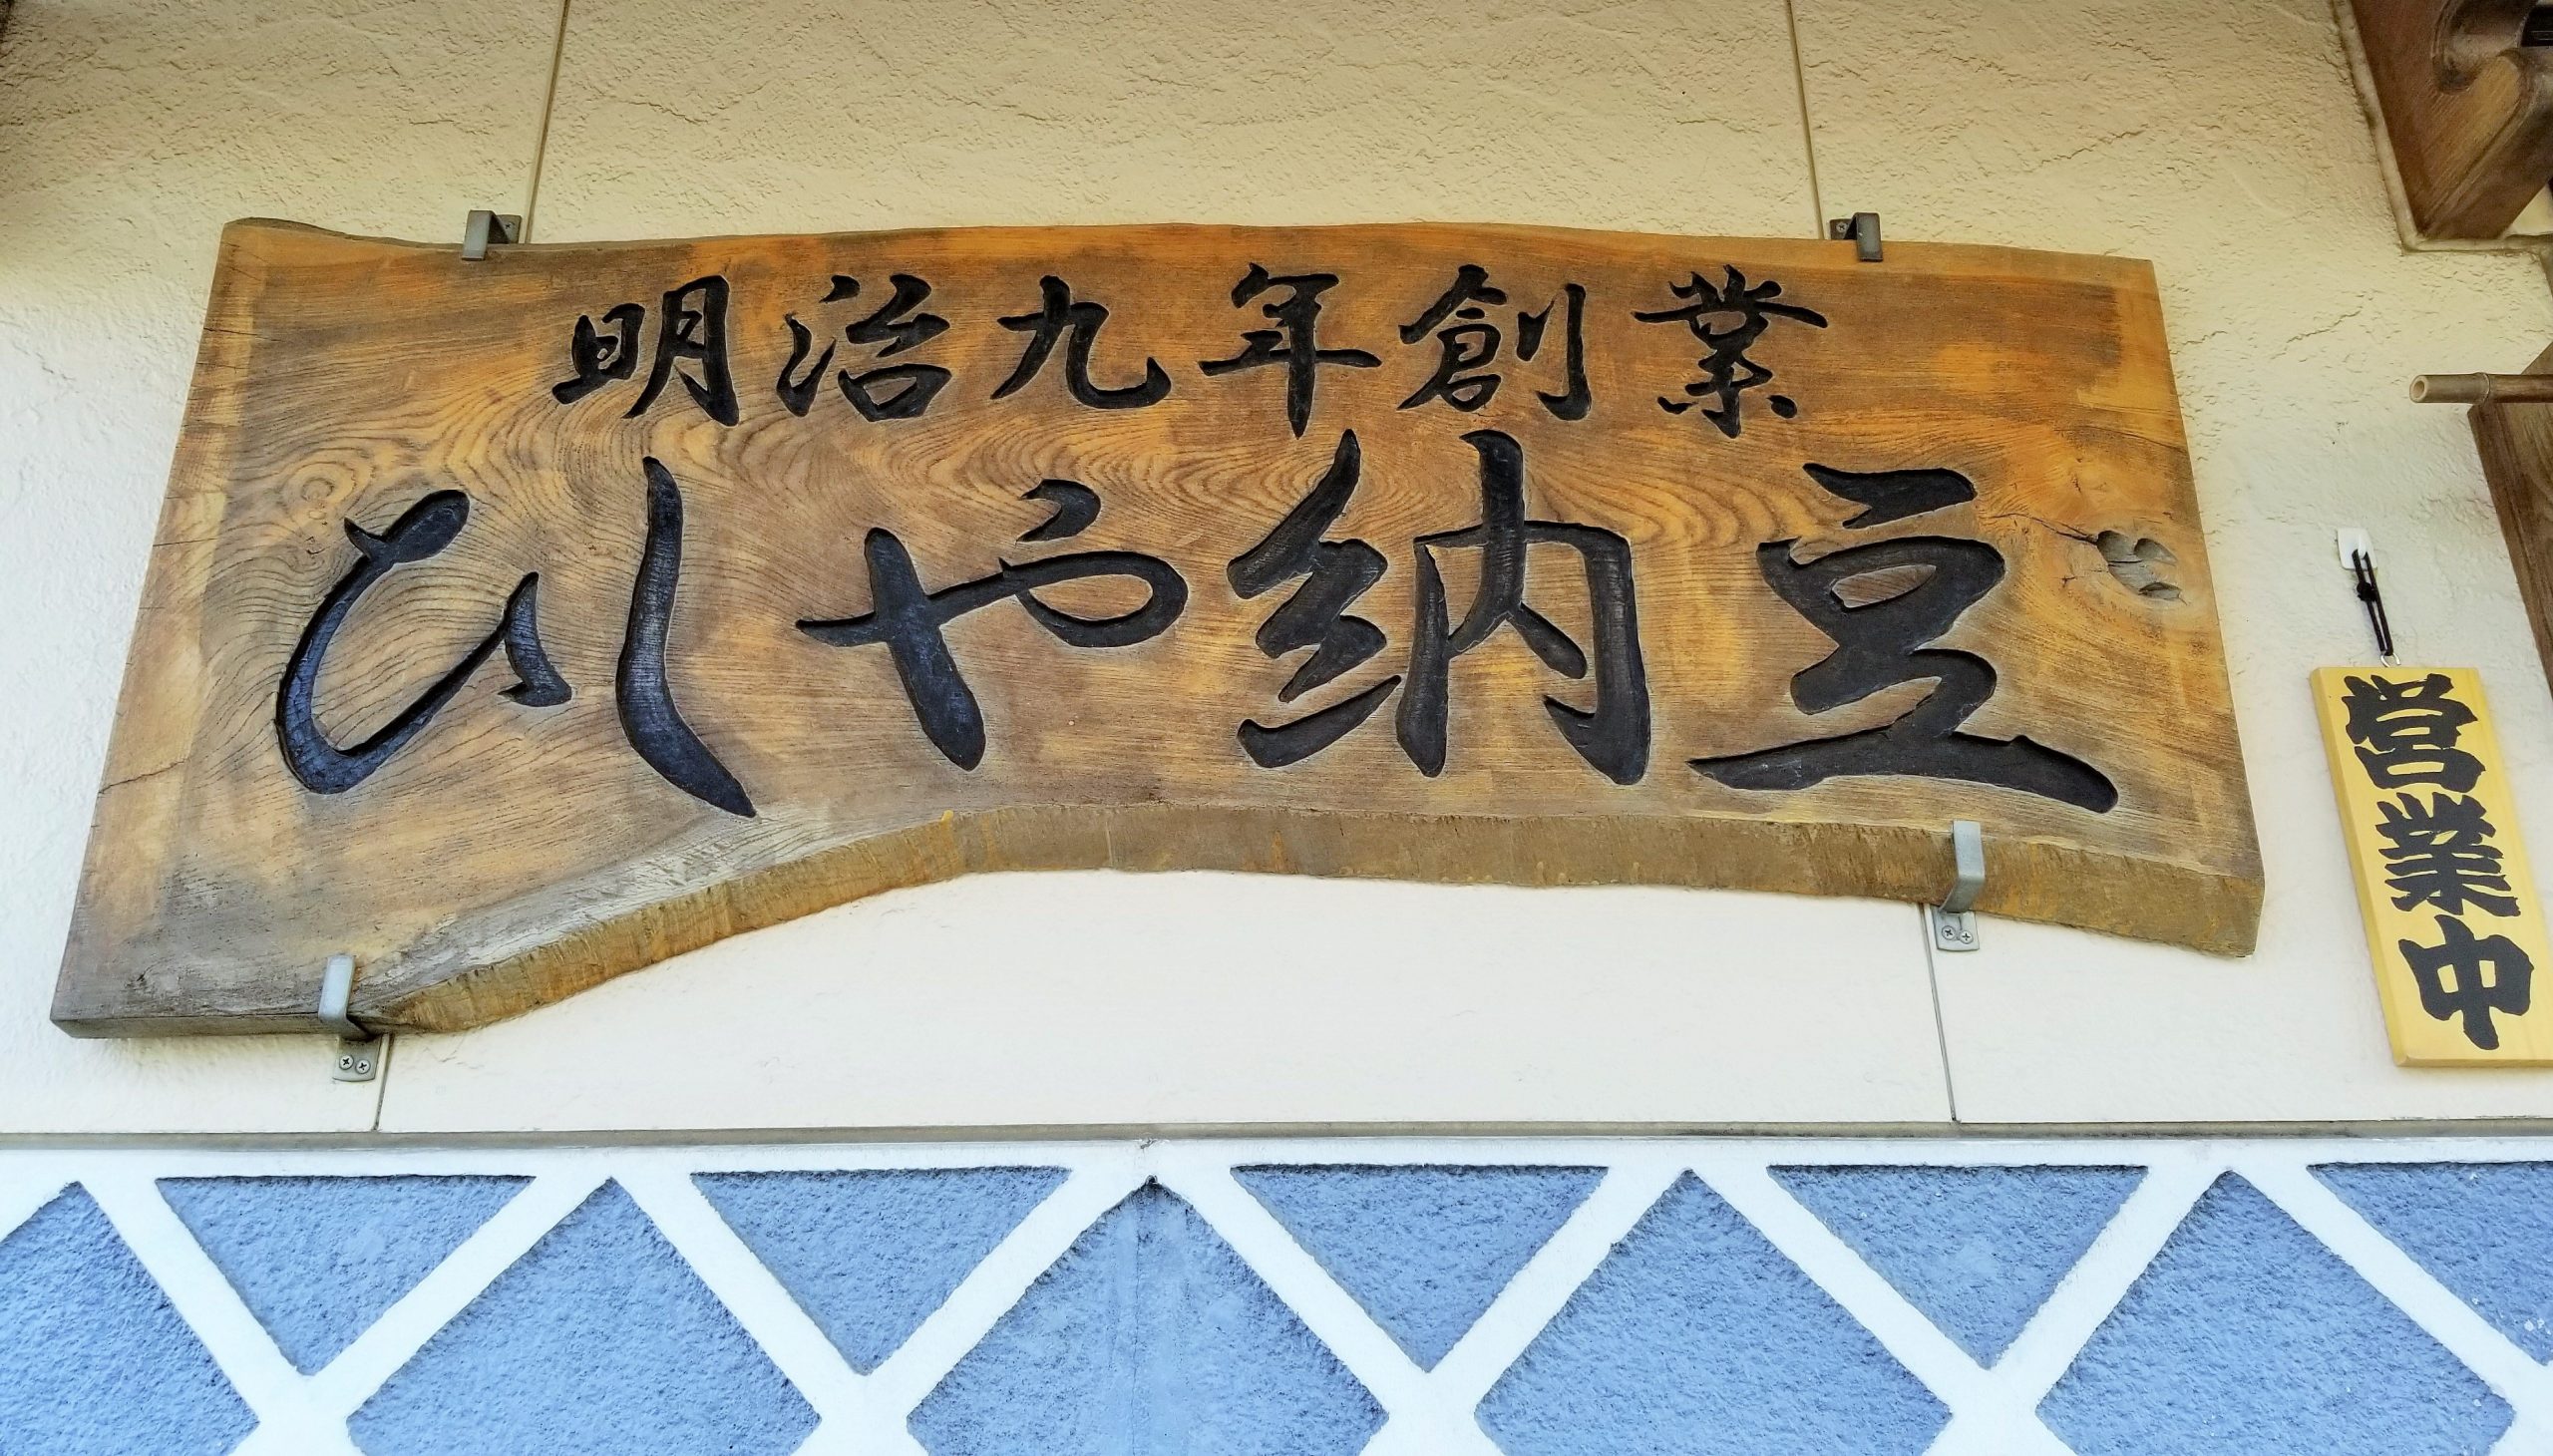 明治九年創業
ひしや納豆
営業中